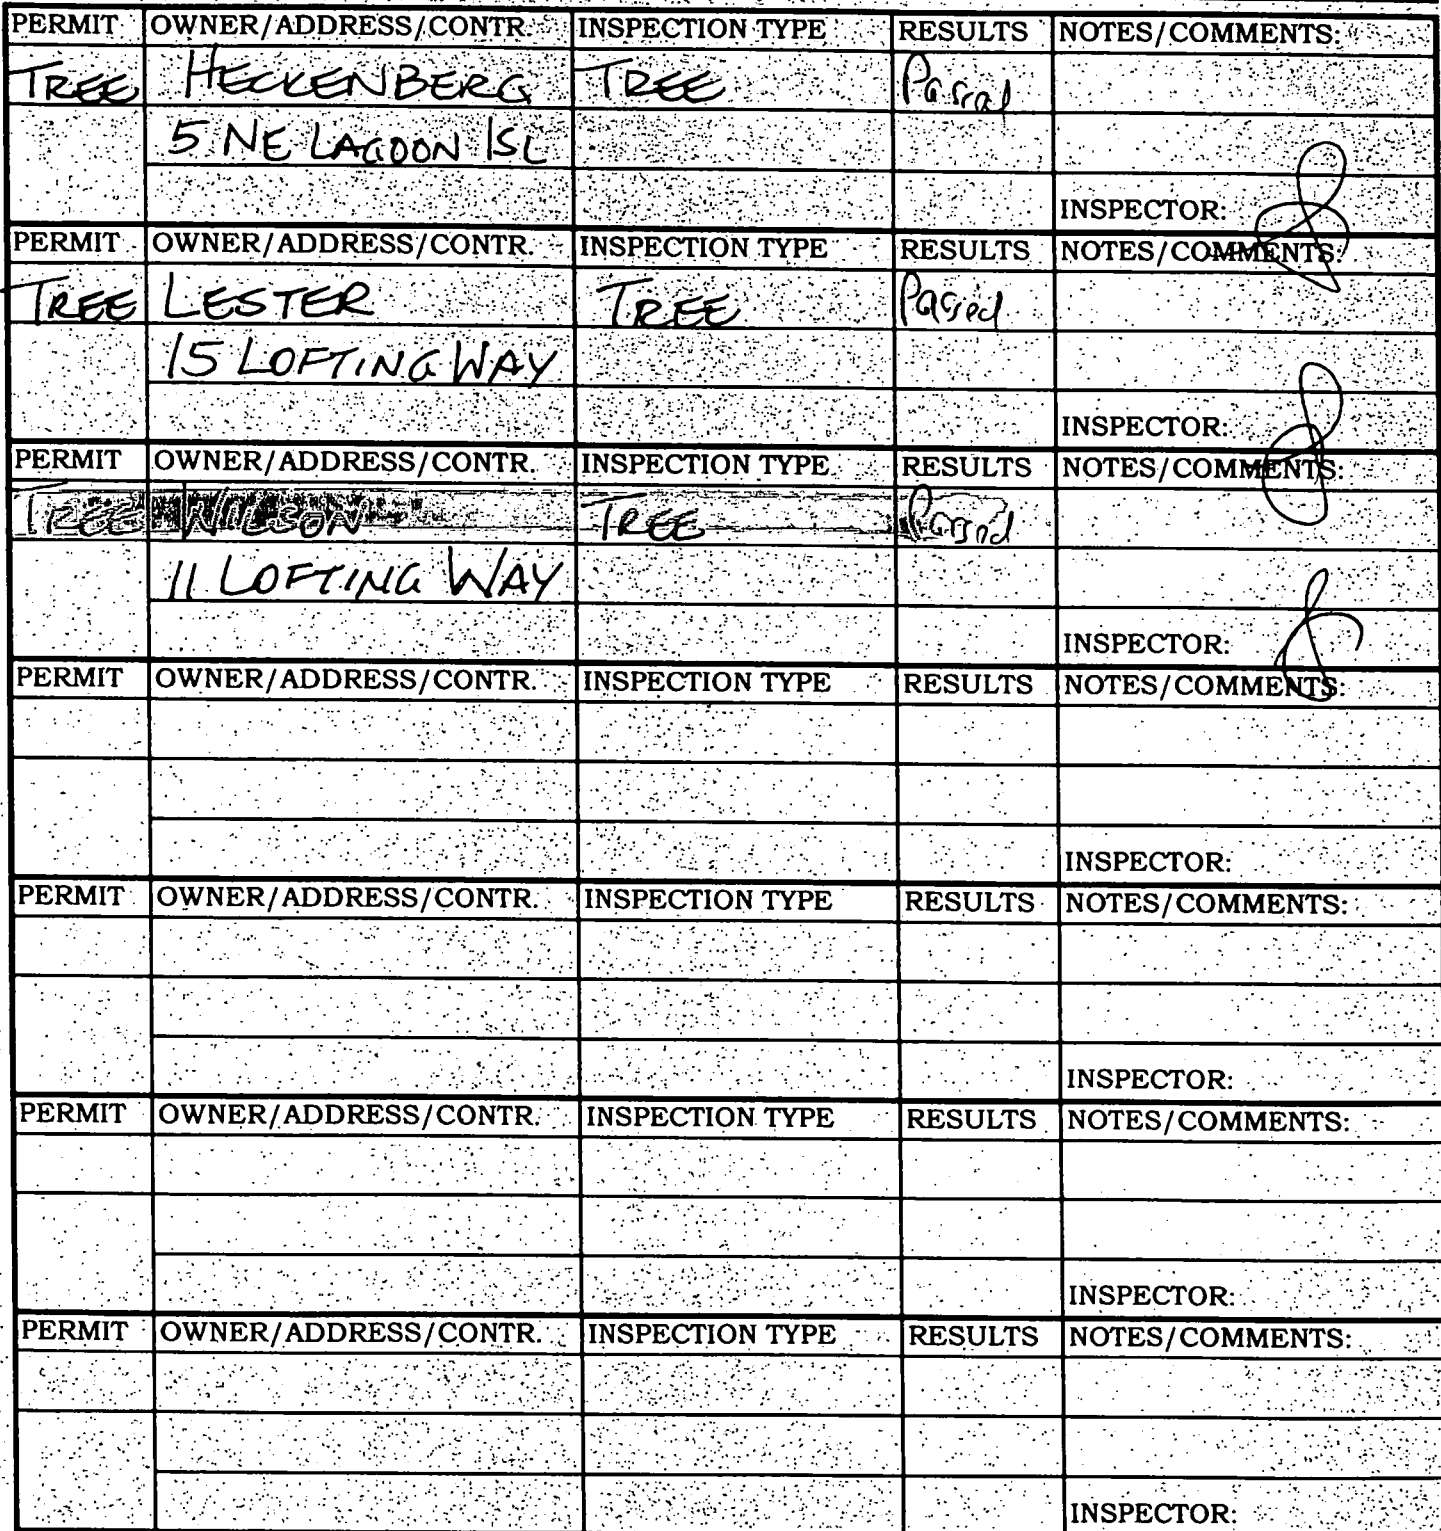 PERMIT OWNER/ADDRESS/CONTR. INSPECTION TYPE RESULTS NOTES/COMMENTS:
TREE HECKENBERG TREE Passed
5 NE LAGOON ISL
INSPECTOR:
PERMIT OWNER/ADDRESS/CONTR. INSPECTION TYPE RESULTS NOTES/COMMENTS:
TREE LESTER TREE Passed
15 LOFTING WAY
INSPECTOR:
PERMIT OWNER/ADDRESS/CONTR. INSPECTION TYPE RESULTS NOTES/COMMENTS:
TREE WILSON TREE Passed
11 LOFTING WAY
INSPECTOR:
PERMIT OWNER/ADDRESS/CONTR. INSPECTION TYPE RESULTS NOTES/COMMENTS:
INSPECTOR:
PERMIT OWNER/ADDRESS/CONTR. INSPECTION TYPE RESULTS NOTES/COMMENTS:
INSPECTOR:
PERMIT OWNER/ADDRESS/CONTR. INSPECTION TYPE RESULTS NOTES/COMMENTS:
INSPECTOR:
PERMIT OWNER/ADDRESS/CONTR. INSPECTION TYPE RESULTS NOTES/COMMENTS:
INSPECTOR: